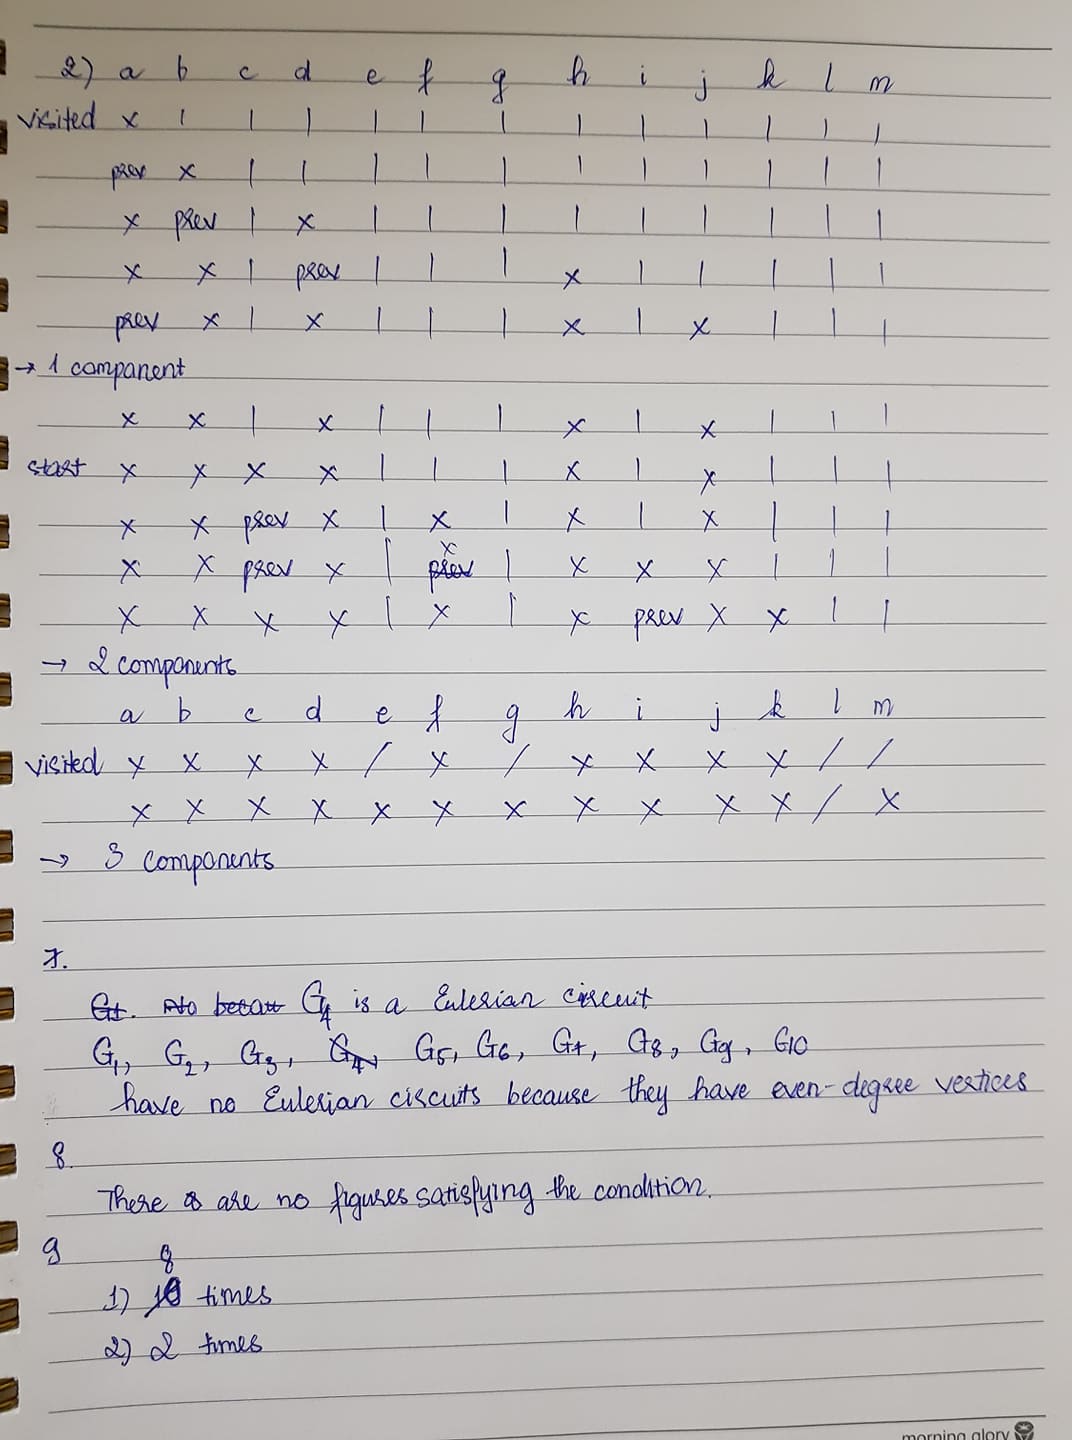 2) a b c d e f g h i j k l m
visited x | | | | | | | | | | | |
prev x | | | | | | | | | | |
x prev | x | | | | | | | | |
x x | prev | | | x | | | | |
prev x | x | | | x | x | | |
→ 1 componant
x x | x | | | x | x | | |
start x x x x | | | x | x | | |
x x prev x | x | x | x | | |
x x prev x | x prev | x x x | | |
x x x x | x | x prev x x | |
→ 2 components
a b c d e f g h i j k l m
visited x x x x / x / x x x x / /
x x x x x x x x x x x / x
→ 3 components
7.
G1. No becau G4 is a Eulerian circuit
G1, G2, G3, G4, G5, G6, G7, G8, G9, G10
have no Eulerian circuits because they have even-degree vertices
8.
There are no figures satisfying the condition.
9 8
1) 10 times
2) 2 times
morning glory